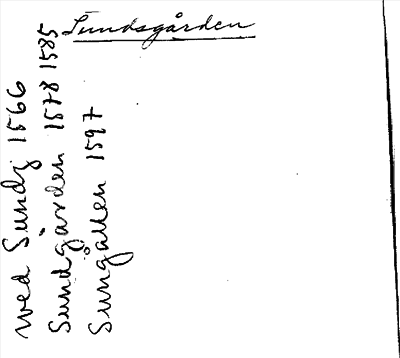 Sundsgården
wed Sundz 1566
Sundgården 1578 1585
Sungållen 1597